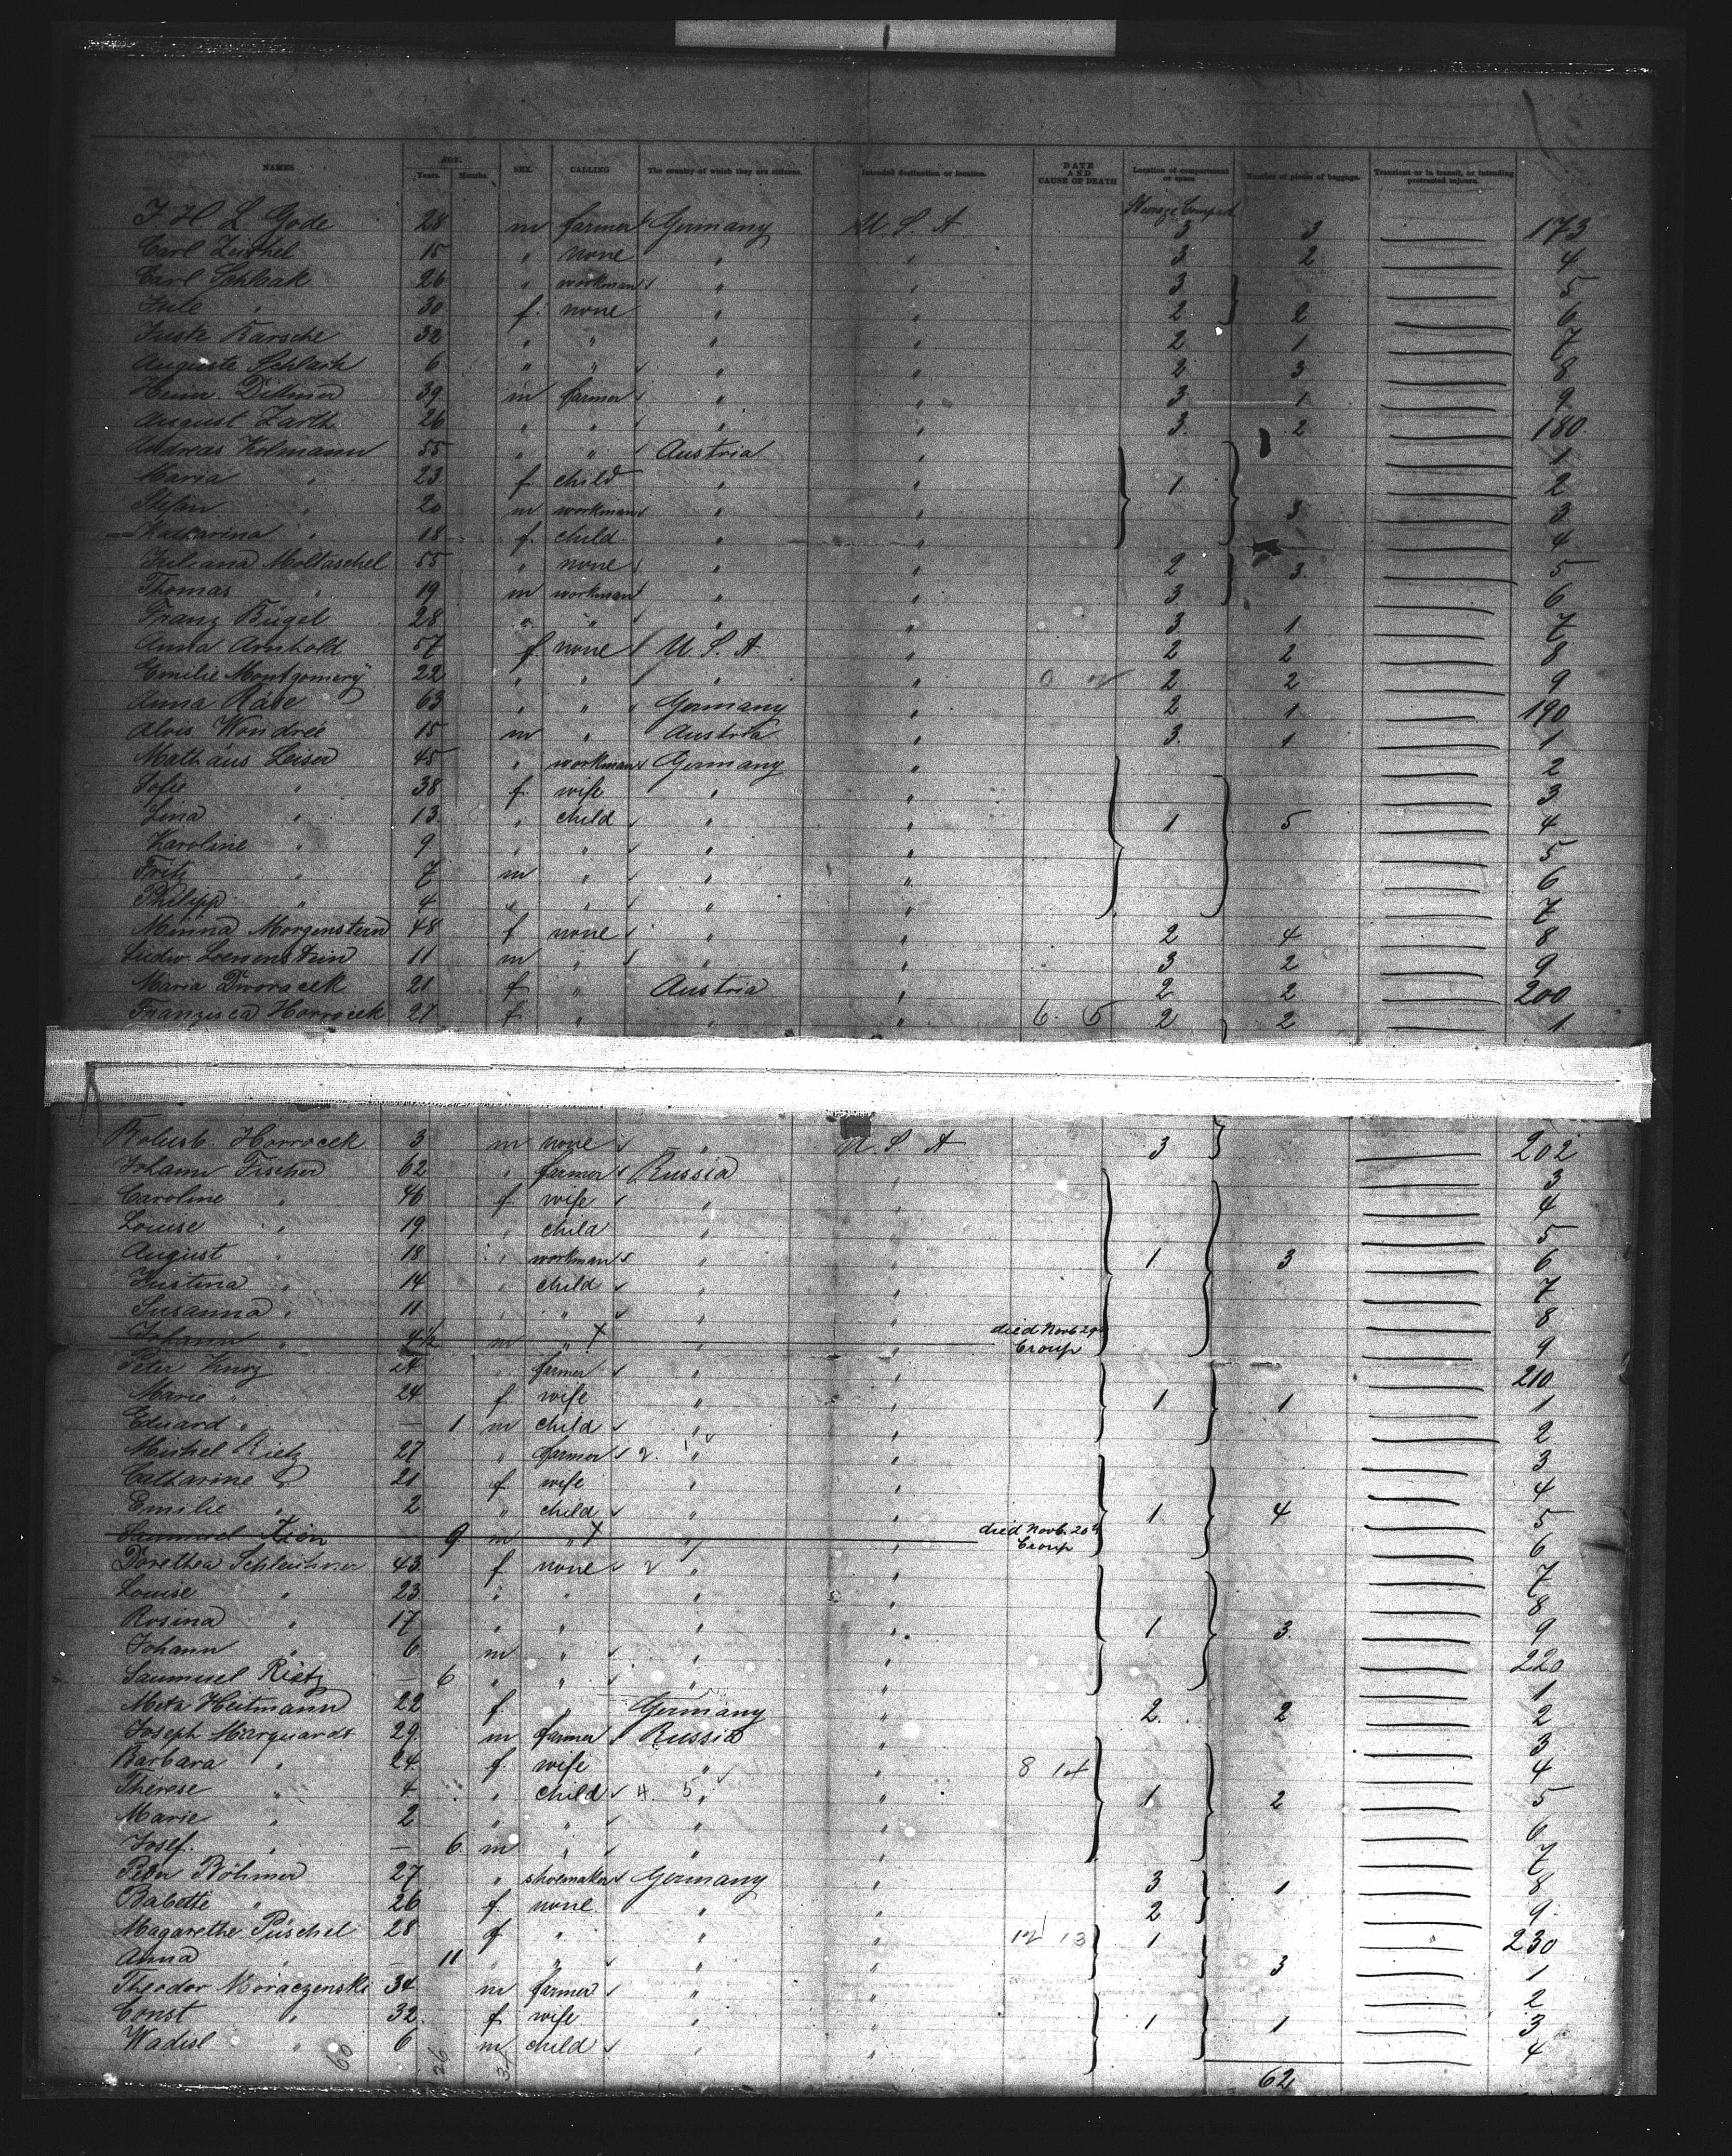 NAMES AGE. Years. Months. SEX. CALLING The country of which they are citizens. Intended destination or location. DATE AND CAUSE OF DEATH Location of compartment or space. Number of pieces of baggage. Transient or in transit, or intending protracted sojourn.
J. H. L. Gode 28 m farmer Germany U. S. A 3 3 173
Carl 15 " none " " 3 2 4
Carl Schlaak 26 " workman " " 3 5
Jule " 30 f. none " " 2 2 6
Juste Karsche 32 " " " " 2 1 7
Auguste Schlach 6 " " " " 2 3 8
Heinr. Dittmer 39 m farmer " " 3 1 9
August Zarth 26 " " " " 3. 2 180
Andreas Kolmann 55 " " Austria " 1
Maria " 23 f child " " 1 2
Stefan " 20 m workman " " 3 3
Katharina " 18 f. child " " 4
Juliana Moltaschel 55 " none " " 2 3. 5
Thomas " 19 m workman " " 3 6
Franz Bügel 28 " " " " 3 1 7
Anna Arnhold 57 f none U. S. A. " 2 2 8
Emilie Montgomery 22 " " " " 2 2 9
Anna Räbe 63 " " Germany " 2 1 190
Alois Wondree 15 m " Austria " 3. 1 1
Mathäus Leiser 45 " workman Germany " 2
Sofie " 38 f. wife " " 3
Lina " 13 " child " " 1 5 4
Karoline " 9 " " " " 5
Fritz " 7 m " " " 6
Philipp " 4 " " " " 7
Minna Morgenstern 48 f none " " 2 4 8
Ludw. Loewenstein 11 m " " " 3 2 9
Maria Dworacek 21 f " Austria " 2 2 200
Franzisca Horrocek 27 f " " " 6. 5 2 2 1
Horrocek 3 m none " U. S. A 3 202
Johann Fischer 62 " farmer Russia " 3
Caroline " 46 f wife " " 4
Louise " 19 " child " " 5
August " 18 " workman " " 1 3 6
Justina " 14 " child " " 7
Susanna " 11 " " " " 8
Johann " 4 1/2 m " " " died Novb 29 Croup 9
Peter Kurz 24 " farmer " " 210
Marie " 24 f. wife " " 1 1 1
Eduard " — 1 m child " " 2
Michel Rietz 27 " farmer 2. " " 3
Catharine " 21 f wife " " 4
Emilie " 2 " child " " 1 4 5
9 m " " " died Novb. 20 Croup 6
Dorethea 43 f none 2 " " 7
Louise " 23 " " " " 8
Rosina " 17 " " " " 1 3. 9
Johann " 6 m " " " 220
Saumuel Rietz — 6 " " " " 1
Meta Heitmann 22 f. " Germany " 2. 2 2
Joseph Marquardt 29 m farmer Russia " 3
Barbara " 24 f. wife " " 8 14 4
Therese " 4 " child 4. 5 " " 1 2 5
Marie " 2 " " " " 6
Josef. " — 6 m " " " 7
Peter Böhmer 27 " shoemaker Germany " 3 1 8
Babette " 26 f none. " " 2 9
Magarethe Püschel 28 f " " " 12 13 1 230
Anna " — 11 " " " " 3 1
Theodor Moraczenski 34 m farmer " " 2
Const " 32 f wife " " 1 1 3
Wadisl " 6 m child " " 4
60 26 62